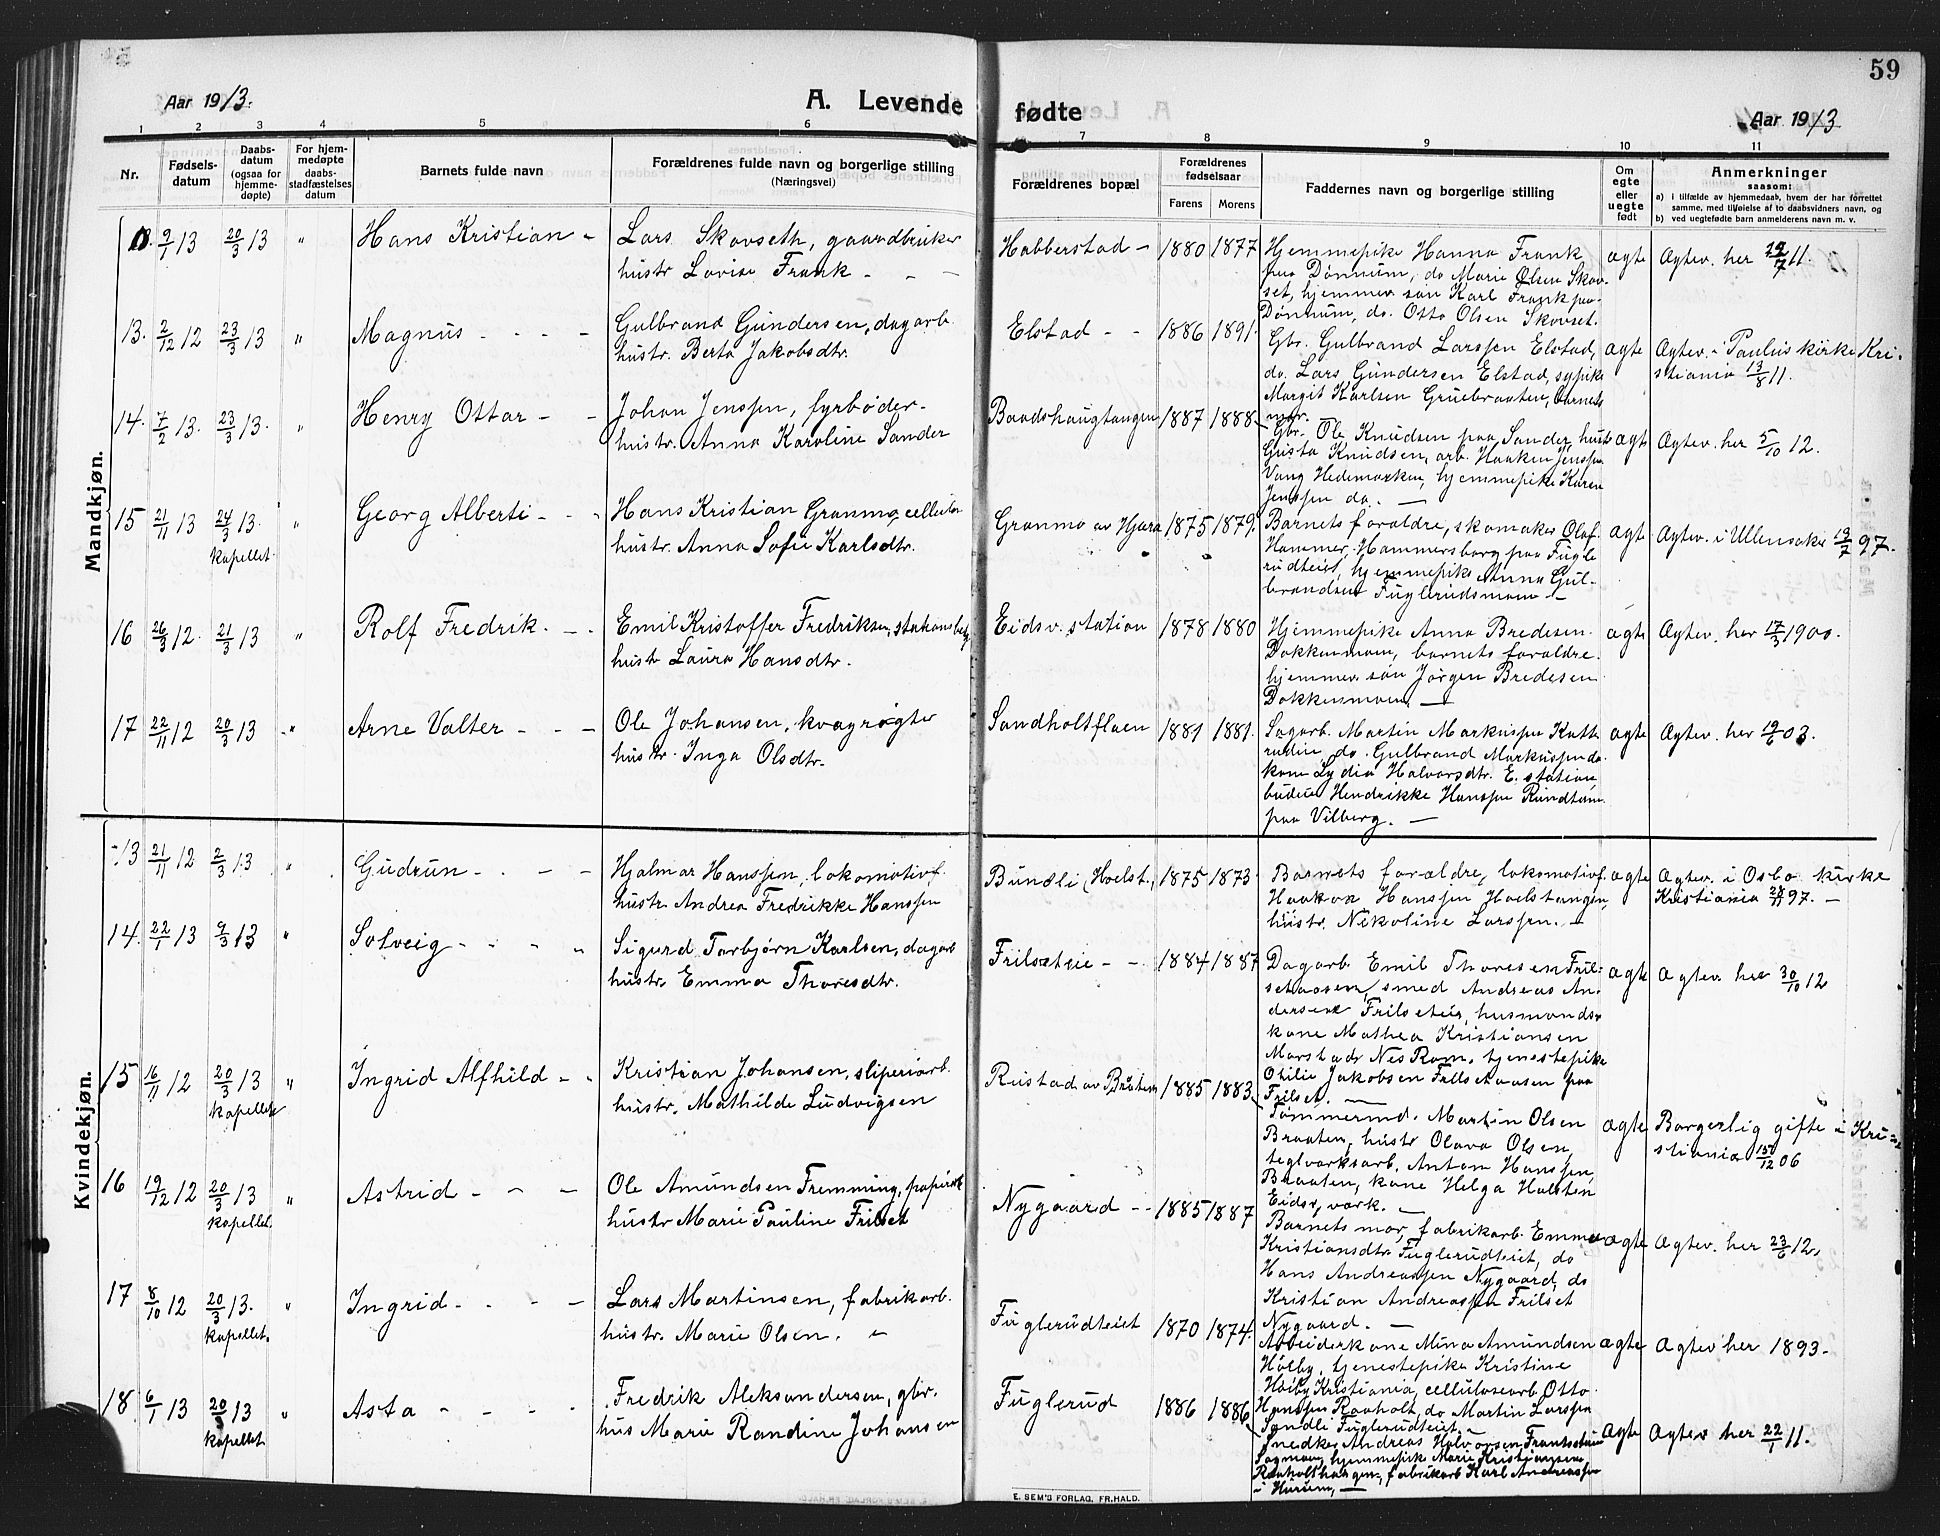 59
Aar 1913.
A. Levende fødte
Aar 1913
1 2 3 4 5 6 7 8 9 10 11
Nr.
Fødsels-
datum
Daabs-
datum
(ogsaa for
hjemme-
døpte)
For hjem-
medøpte
daabs-
stadfæstelses
datum
Barnets fulde navn
Forældrenes fulde navn og borgerlige stilling
(Næringsvei)
Forældrenes bopæl
Forældrenes
fødselsaar
Farens Morens
Faddernes navn og borgerlige stilling
Om
egte
eller
uegte
født
Anmerkninger
saasom:
a) I tilfælde av hjemmedaab, hvem der har forrettet
samme, med tilføielse af to daabsvidners navn, og
b) ved uegtefødte barn anmelderens navn m. v.
Mandkjøn.
9/1 13 20/3 13 " Hans Kristian -
Lars Skovseth, gaardbruker
hustr Lovise Frank - - -
Habberstad - 1880 1877
Hjemmepike Hanna Frank
paa Dønnum, do Marie Olsen Skov-
set, hjemmev. søn Karl Frank paa
Dønnum, do. Otto Olsen Skovset.
ægte Ægtev. her 11.
13. 2/12 12 23/3 13 " Magnus - - - -
Gulbrand Gundersen, dagarb.
hustr. Berta Jakobsdtr.
Elstad - - 1886 1891.
Gbr. Gulbrand Larssen Elstad,
do. Lars Gundersen Elstad, sypike
Margit Karlsen Gruebraaten, barnets
mor.
ægte Ægtev. i Paulus kirke Kri-
stiania 13/8 11.
14. 7/2 13. 23/3 13. " Henry Ottar - -
Johan Jenssen, fyrbøder-
hustr. Anna Karoline Sander
Baadshaugtangen 1887 1888
Gbr. Ole Knudsen paa Sander, hustr
Gusta Knudsen, arb. Haaken Jenssen
Vang Hedemarken, hjemmepike Karen
Jenssen do. -
ægte Ægtev. her 5/10 12.
15 21/11 13 24/3 13. " Georg Alberti - - -
kapellet.
Hans Kristian Granmo, cellulosearb
hustr. Anna Sofie Karlsdtr.
Granmo av Hjæra 1875 1879.
Barnets forældre, skomaker Olaf
Hammer, Hammersborg paa Fugle
rudteiet, hjemmepike Anna Gul-
brandsen Fuglerudsmoen -
ægte Ægtev. i Ullensaker 19/7 97.
16 26/3 12. 21/3 13 " Rolf Fredrik. - -
Emil Kristoffer Fredriksen, stationsbetj.
hustr Laura Hansdtr.
Eidsv. station 1878 1880
Hjemmepike Anna Bredesen
Dokkenmoen, barnets forældre.
hjemmev. søn Jørgen Bredesen
Dokkenmoen. -
ægte Ægtev. her 17/3 1900.
17 22/11 12 20/3 13 - " Arne Valter - - -
Ole Johansen, kvægrøgter
hustr. Inga Olsdtr.
Sandholtfloen 1881 1881.
Sagarb. Martin Markussen Katt-
rudin, do. Gulbrand Markussen do.
kone Lydia Halvorsdtr. E. station
budeie Hendrikke Hanssen Rundtom
paa Vilberg. -
ægte Ægtev. her 19/6 03.
Kvindekjøn.
13 21/11 12 2/3 13 " Gudrun - - -
Hjalmar Hanssen, lokomotivf.
hustr. Andrea Fredrikke Hanssen
Bunæli, Hoelst., 1875 1873
Barnets forældre, lokomotivf.
Haakon Hanssen Hoelstangen,
hustr. Nikoline Larssen. -
ægte Ægtev. i Oslo kirke
Kristiania 28/11 97. -
14. 22/1 13 9/3 13 " Solveig - - - -
Sigurd Torbjørn Karlsen, dagarb
hustr. Emma Thoresdtr.
Frilseteie - - 1884 1887
Dagarb. Emil Thoresen Fril-
setaasen, smed Andreas An-
dersen Frilseteie, husmands-
kone Mathea Kristiansen
Marstads Nes Rom. tjenestepike
Othilie Jakobsen Frilsetaasen paa
Frilset. -
ægte Ægtev. her 30/10 12
15 16/11 12 20/3 13 " Ingrid Alfhild - -
kapellet
Kristian Johansen, sliperiarb.
hustr. Mathilde Ludvigsen
Rustad av Bråten 1885 1883
Tømmermd. Martin Olsen
Braaten, hustr Olava Olsen,
teglverksarb. Anton Hanssen,
Braaten, kone Helga Halsten
Eidsv. værk. -
ægte Borgerlig gifte i Kri-
stiania 15/12 06
16 19/12 12 20/3 13 " Astrid - - -
kapellet.
Ole Amundsen Fremming, papirarb
hustr Marie Pauline Frilset
Nygaard - - 1885 1887
Barnets mor, fabrikarb. Emma
Kristiansdtr Fuglerudteiet, do
Hans Andreassen Nygaard, do
Kristian Andreassen Frilset
Nygaard. -
ægte Ægtev. her 23/6 12.
17 8/10 12 20/3 13. " Ingrid - - - -
kapellet.
Lars Martinsen, fabrikarb.
hustr. Marie Olsen. -
Fuglerudteiet 1870 1874.
Arbeiderkone Mina Amundsen
Høiby, tjenestepike Kristine
Høiby Kristiania, cellulosearb Otto
Hanssen Raaholt, do Martin Larssen
Sandli Fuglerudteiet. -
ægte Ægtev her 1893.
18. 6/1 13 20/3 13 " Asta - - - -
kapellet
Fredrik Aleksandersen, gbr.
hus Marie Randine Johansen
Fuglerud 1886 1886
Snedker Andreas Halvorsen
Sagmoen, hjemmepike Marie Kristiansen
Raaholthaugen, fabrikarb Karl Andreassen
i Husum, -
ægte Ægtev her 22/1 11.
E. SEM'S FORLAG, FR.HALD.